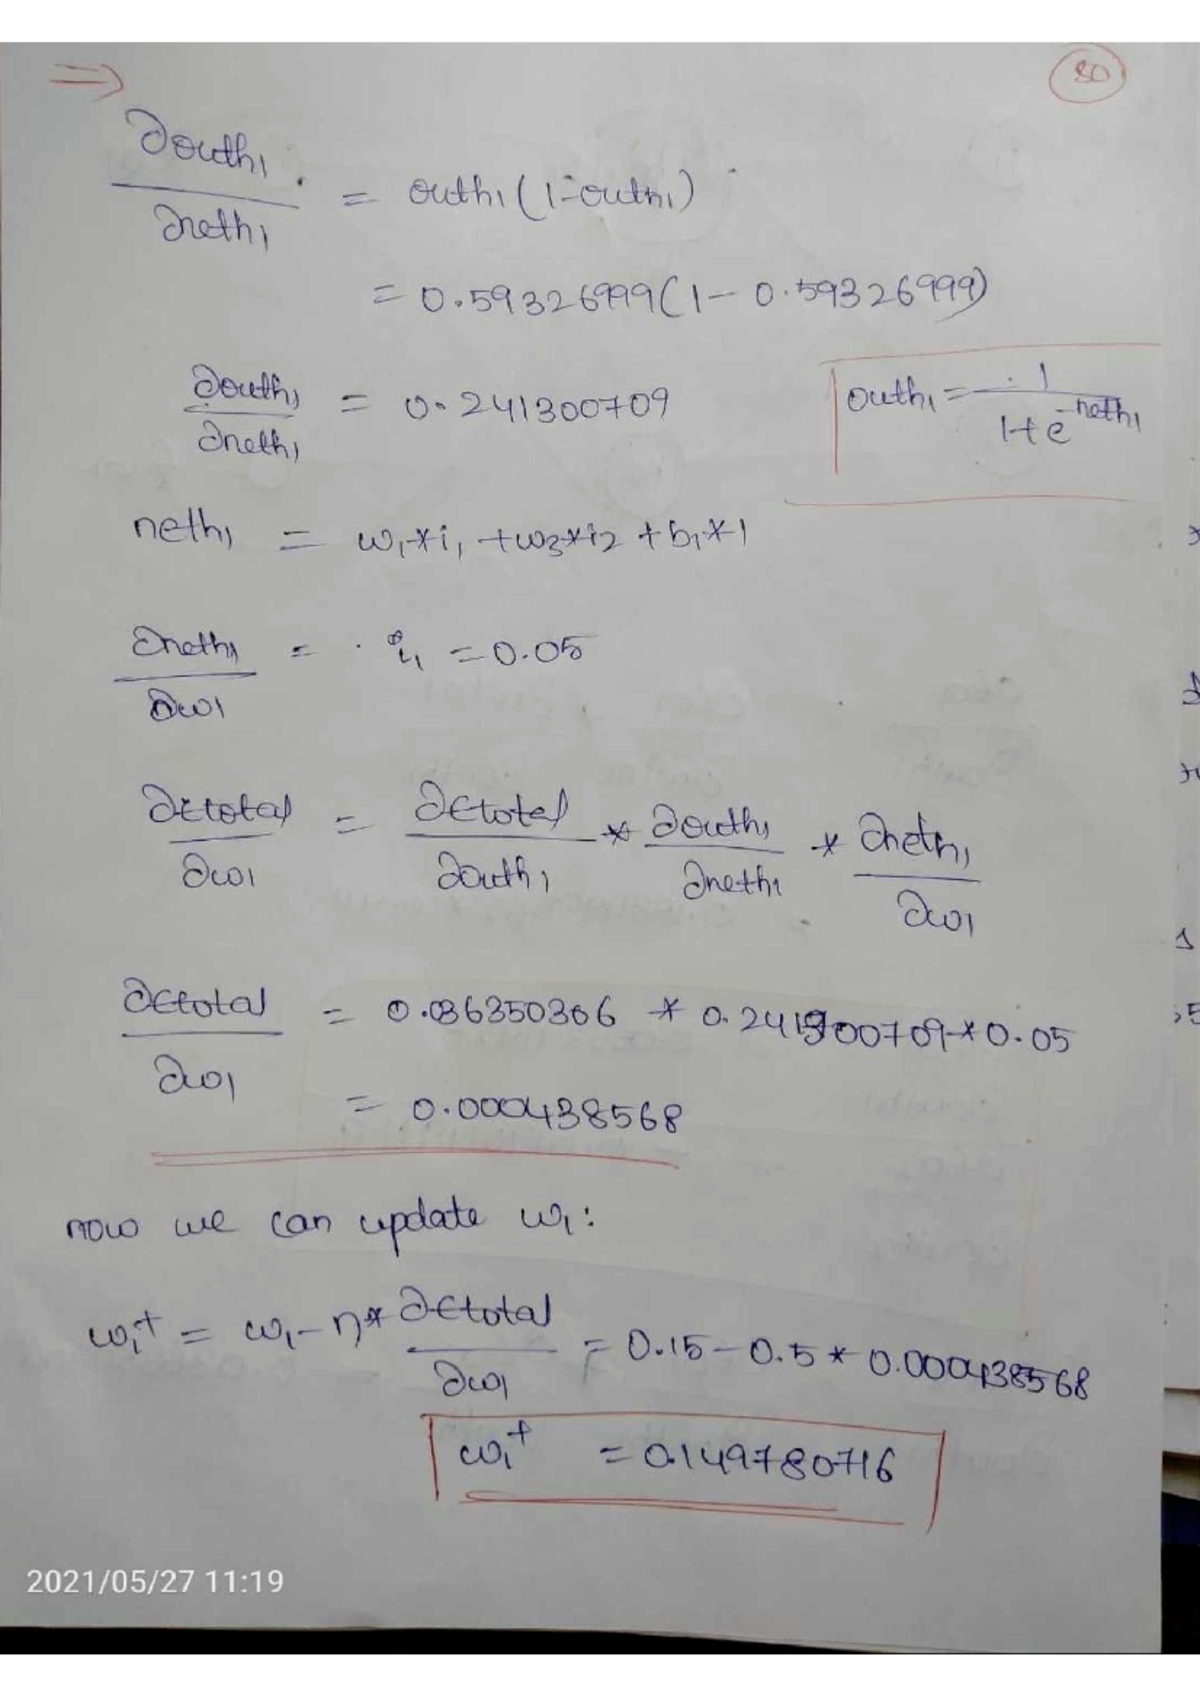 ⇒ 80
∂outh1 / ∂neth1 = outh1 (1-outh1)
= 0.59326999 (1 - 0.59326999)
∂outh1 / ∂neth1 = 0.241300709
outh1 = 1 / 1+e^-neth1
neth1 = w1*i1 + w3*i2 + b1*1
∂neth1 / ∂w1 = i1 = 0.05
∂Etotal / ∂w1 = ∂Etotal / ∂outh1 * ∂outh1 / ∂neth1 * ∂neth1 / ∂w1
∂Etotal / ∂w1 = 0.036350306 * 0.241300709 * 0.05
= 0.000438568
now we can update w1:
w1+ = w1 - η * ∂Etotal / ∂w1 = 0.15 - 0.5 * 0.000438568
w1+ = 0.149780716
2021/05/27 11:19